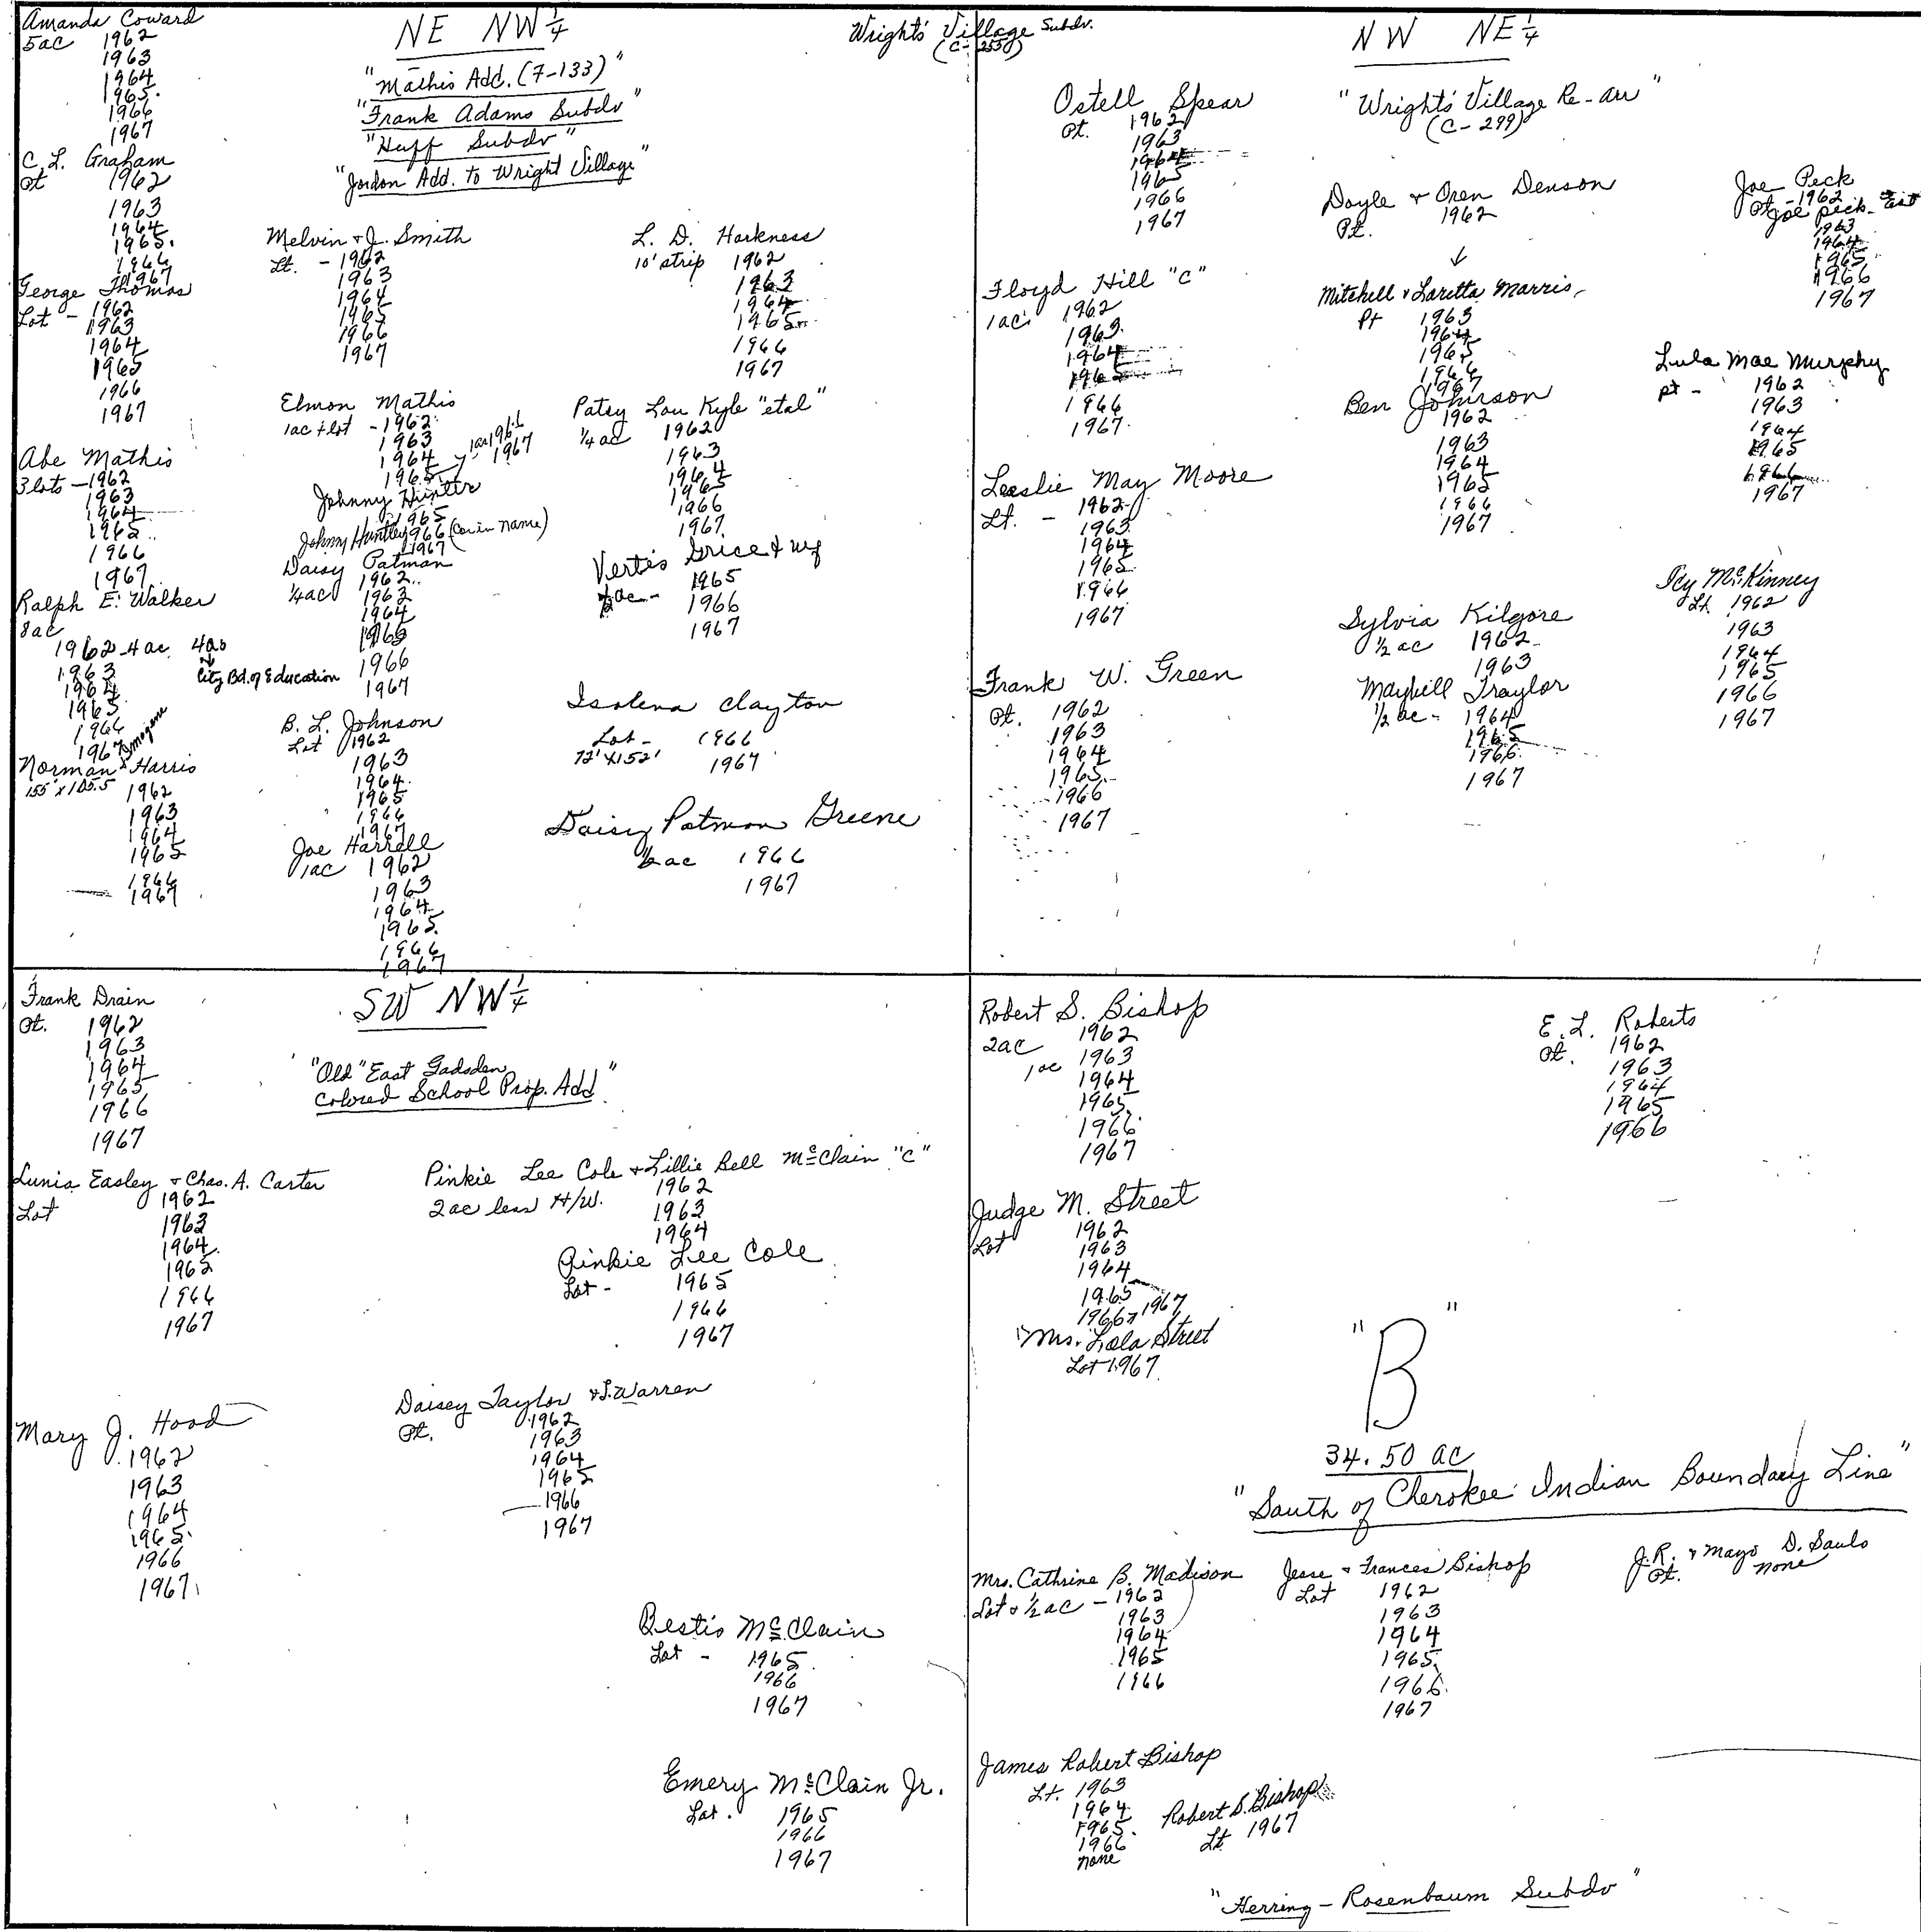 Amanda Coward
5ac 1962
1963
1964
1965
1966
1967
C. L. Graham
Pt 1962
1963
1964
1965
1966
1967
George Thomas
Lot - 1962
1963
1964
1965
1966
1967
Abe Mathis
3 lots - 1962
1963
1964
1965
1966
1967
Ralph E. Walker
8ac
1962 - 4 ac 4ac
City Bd. of Education
1963
1964
1965
1966
1967
Norman & Imogene Harris
155' x 105.5 1962
1963
1964
1965
1966
1967
NE NW¼
"Mathis Add. (7-133)"
"Frank Adams Subdv"
"Huff Subdv"
"Jordon Add. to Wright Village"
Melvin & J. Smith
Lt. - 1962
1963
1964
1965
1966
1967
Elmon Mathis
1ac + lot - 1962
1963
1964
1965
1ac 1966
1967
Johnny Hunter
1965
Johnny Huntley 1966 (Cor in name)
1967
Daisy Patman
¼ac 1962
1963
1964
1965
1966
1967
B. L. Johnson
Lot 1962
1963
1964
1965
1966
1967
Joe Harrell
1ac 1962
1963
1964
1965
1966
1967
L. D. Harkness
10' strip 1962
1963
1964
1965
1966
1967
Patsy Lou Kyle "etal"
¼ ac 1962
1963
1964
1965
1966
1967
Vertis Grice & wf
½ ac - 1965
1966
1967
Isolena Clayton
Lot - 1966
72' X 152' 1967
Daisy Patman Greene
½ ac 1966
1967
Wright's Village Subdv.
(C-255)
NW NE¼
"Wright's Village Re-arr"
(C-299)
Ostell Spear
Pt. 1962
1963
1964
1965
1966
1967
Floyd Hill "C"
1ac 1962
1963
1964
1965
1966
1967
Leeslie May Moore
Lt. - 1962
1963
1964
1965
1966
1967
Frank W. Green
Pt. 1962
1963
1964
1965
1966
1967
Doyle & Oren Denson
Pt. 1962
Mitchell & Laretta Marris
Pt 1963
1964
1965
1966
1967
Ben Johnson
1962
1963
1964
1965
1966
1967
Sylvia Kilgore
½ ac 1962
1963
Maybell Traylor
½ ac - 1964
1965
1966
1967
Joe Peck
Pt - 1962
Joe Peck - Est
1963
1964
1965
1966
1967
Lula Mae Murphy
pt - 1962
1963
1964
1965
1966
1967
Icy McKinney
Lt. 1962
1963
1964
1965
1966
1967
Frank Drain
Pt. 1962
1963
1964
1965
1966
1967
SW NW¼
"Old" East Gadsden
Colored School Prop. Add"
Lunia Easley & Chas. A. Carter
Lot 1962
1963
1964
1965
1966
1967
Pinkie Lee Cole & Lillie Bell McClain "C"
2 ac less H/W. 1962
1963
1964
Pinkie Lee Cole
Lot - 1965
1966
1967
Mary J. Hood
1962
1963
1964
1965
1966
1967
Daisey Taylor & S. Warren
Pt. 1962
1963
1964
1965
1966
1967
Bestis McClain
Lot - 1965
1966
1967
Emery McClain Jr.
Lot. 1965
1966
1967
Robert S. Bishop
2ac 1962
1ac 1963
1964
1965
1966
1967
E. L. Roberts
Pt. 1962
1963
1964
1965
1966
Judge M. Street
Lot 1962
1963
1964
1965
1966 1967
Mrs. Lola Street
Lot 1967
"B"
34.50 ac
"South of Cherokee Indian Boundary Line"
Mrs. Cathrine B. Madison
Lot & ½ ac - 1962
1963
1964
1965
1966
Jesse & Frances Bishop
Lot 1962
1963
1964
1965
1966
1967
J.R. & Mayo D. Sauls
Pt. none
James Robert Bishop
Lt. 1963
1964
1965
1966
none
Robert S. Bishop
Lt 1967
"Herring - Rosenbaum Subdv"